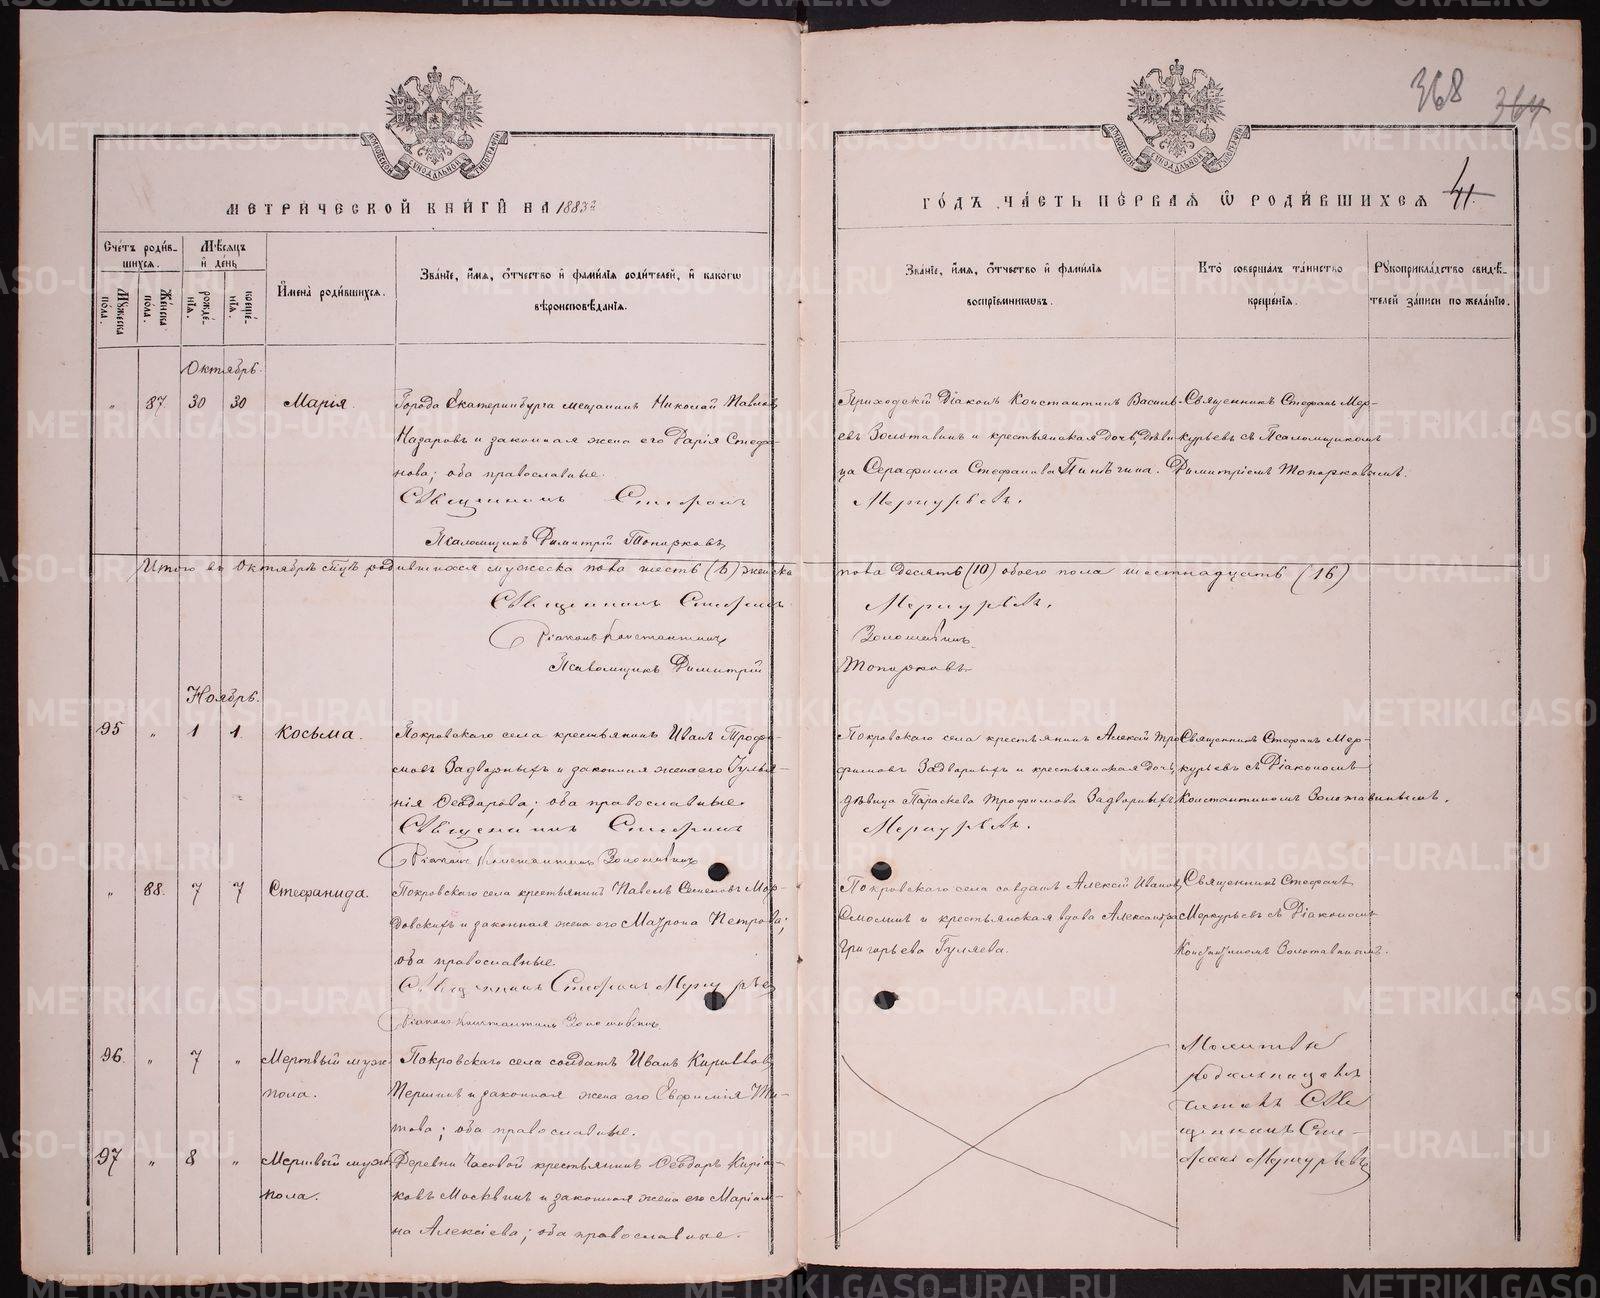 368 364
МЕТРИЧЕСКОЙ КНИГИ НА 1883й
ГОДЪ ЧАСТЬ ПЕРВАЯ Ѿ РОДИВШИХСЯ 41
Счетъ родив-
шихся.
Мужеска пола.
Женска пола.
Мѣсяцъ
и день
рожде-
нія.
креще-
нія.
Имена родившихся.
Званіе, имя, отчество и фамилія родителей, и какогѡ
вѣроисповѣданія.
Званіе, имя, отчество и фамилія
воспріемниковъ.
Кто совершалъ таинство
крещенія.
Рукоприкладство свидѣ-
телей записи по желанію.
Октябрь.
„ 87. 30 30 Марія.
Города Екатеринбурга мещанинъ Николай Павловъ
Назаровъ и законная жена его Дарія Стефа-
нова; оба православные.
Священникъ Стефанъ
Псаломщикъ Димитрій Топорковъ
Приходскій Діаконъ Константинъ Василь-
евъ Золотавинъ и крестьянская дочь, дѣви-
ца Серафима Стефанова Пинѣгина.
Меркурьевъ.
Священникъ Стефанъ Мер-
курьевъ съ Псаломщикомъ
Димитріемъ Топорковымъ.
Итого въ Октябрѣ мцѣ родившихся мужеска пола шесть (6) женска
пола десять (10) обоего пола шестнадцать (16)
Священникъ Стефанъ
Меркурьевъ.
Діаконъ Константинъ
Золотавинъ
Псаломщикъ Димитрій
Топорковъ
Ноябрь.
95 „ 1 1 Косьма.
Покровскаго села крестьянинъ Иванъ Трофи-
мовъ Задворныхъ и законная жена его Іулья-
нія Ѳеодорова; оба православные.
Священникъ Стефанъ
Діаконъ Константинъ Золотавинъ
Покровскаго села крестьянинъ Алексѣй Тро-
фимовъ Задворныхъ и крестьянская дочь,
дѣвица Параскева Трофимова Задворныхъ
Меркурьевъ.
Священникъ Стефанъ Мер-
курьевъ съ Діакономъ
Константиномъ Золотавинымъ.
„ 88. 7 7 Стефанида.
Покровскаго села крестьянинъ Павелъ Семеновъ Мор-
довскихъ и законная жена его Матрона Петрова;
оба православные.
Священникъ Стефанъ Меркурьевъ
Діаконъ Константинъ Золотавинъ
Покровскаго села солдатъ Алексѣй Ивановъ
и крестьянская вдова Александра
Григорьева Гуляева.
Священникъ Стефанъ
Меркурьевъ съ Діакономъ
Константиномъ Золотавинымъ.
96. „ 7 „ Мертвый муж.
пола.
Покровскаго села солдатъ Иванъ Кирилловъ
Першинъ и законная жена его Евфимія Ти-
това; оба православные.
Молитвы
родильницамъ
читалъ Свя-
щенникъ Сте-
фанъ Меркурьевъ
97 „ 8 „ Мертвый муж.
пола.
Деревни Часовой крестьянинъ Ѳеодоръ Киріа-
ковъ Москвинъ и законная жена его Маріам-
на Алексіева; оба православные.
METRIKI.GASO-URAL.RU